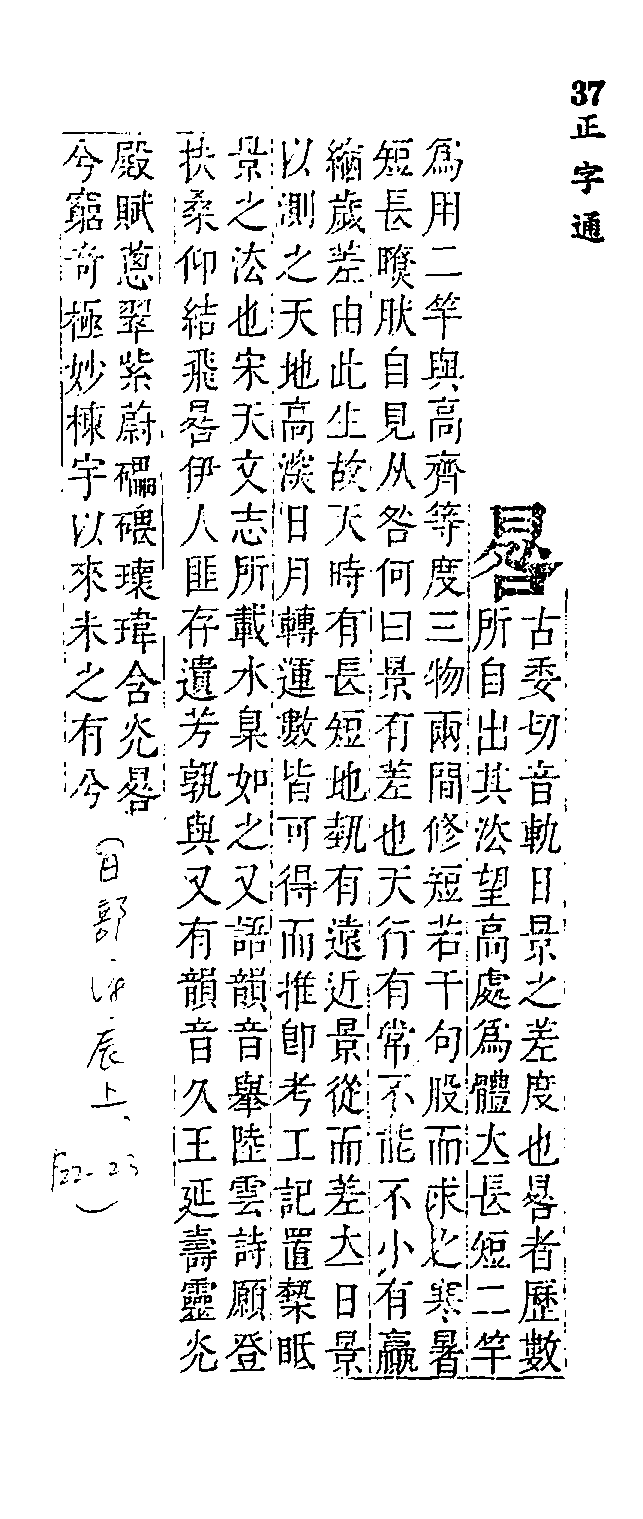 37正字通
晷
古委切音軌日景之差度也晷者歷數
所自出其法望高處為體大長短二竿
為用二竿與高齊等度三物兩間修短若干句股而求之寒暑
短長肰自見从咎何曰景有差也天行有常不能不小有贏
縮歲差由此生故天時有長短地埶有遠近景從而差大日景
以測之天地高深日月轉運數皆可得而推卽考工記置槷眡
景之法也宋天文志所載水臬如之又語韻音舉陸雲詩願登
扶桑仰結飛晷伊人匪存遺芳孰與又有韻音久王延壽靈光
殿賦蔥翠紫蔚礧碨瓌瑋含光晷
兮窮奇極妙棟宇以來未之有兮
(日部·辰上、
F22-23)